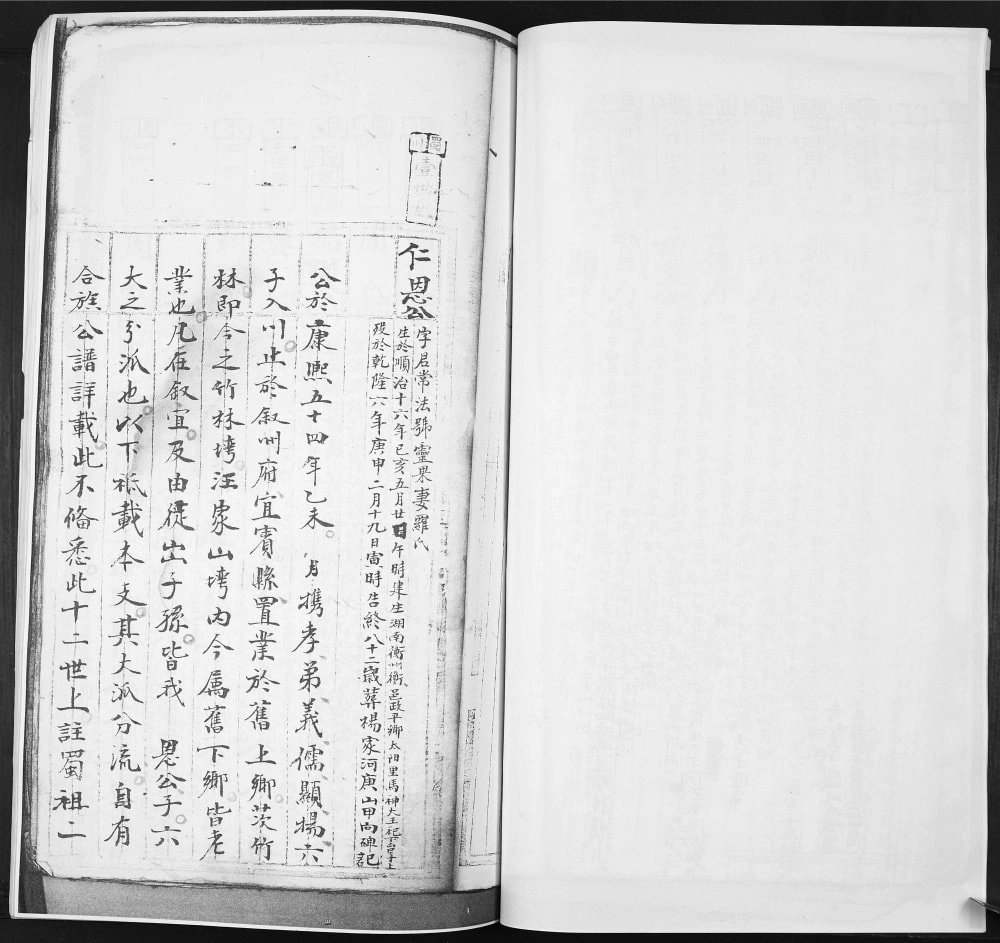 壹世
仁恩公
字君常法號靈杲妻羅氏
生於順治十六年己亥五月廿日午時建生湖南衡州衡邑政平鄉太阳里馬神大王祀下
歿於乾隆六年庚申二月十九日寅時告終八十二歲葬楊家河庚山甲向碑記
公於康熙五十四年乙未。 月攜孝弟義儒顯揚六
子入川止於叙州府宜賓縣置業於舊上鄉茨竹
林即今之竹林塆汪家山塆内今属舊下鄉皆老
業也凡在叙宜及由從出子孫皆我 恩公子六
大之分派也以下祗載本支其大派分流自有
合族公譜詳載此不俻悉此十二世上註蜀祖二